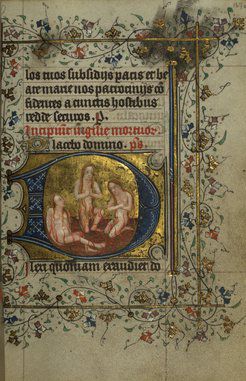 los tuos subsidijs pacis et be
ate marie nos patrocinijs cō
fidentes a cunctis hostibus
redde securos. P.
Incipiūt vigilie mortuor.
lacebo domino. ps.
Dilexi quoniam exaudiet do